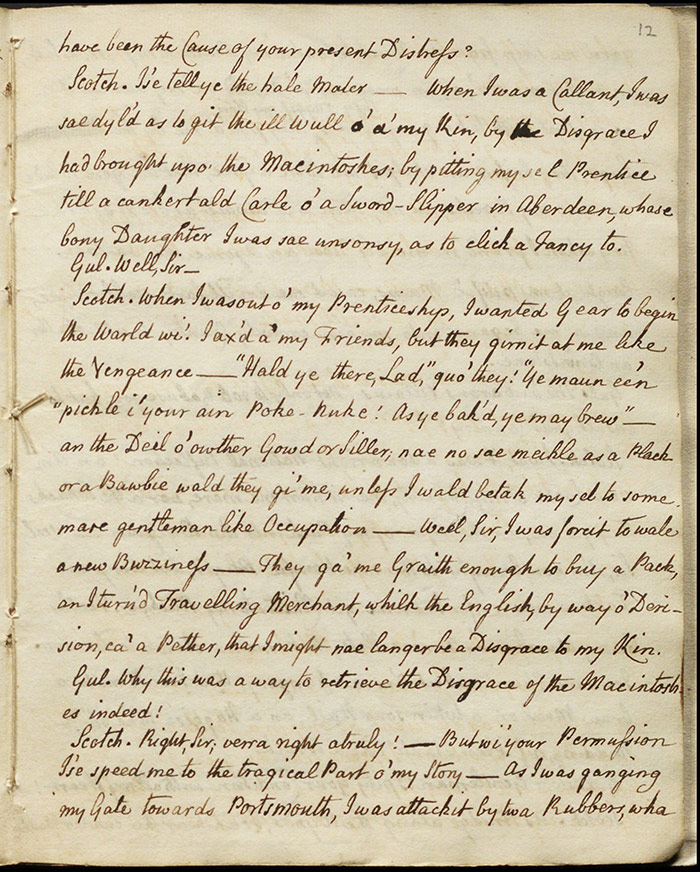 12
have been the Cause of your present Distress?
Scotch. I'se tell ye the hale Mater — When I was a Callant, I was
sae dyl'd as to git the ill Wull o' a' my Kin, by the Disgrace I
had brought upo' the Macintoshes; by pitting mysel Prentice
till a cankert ald Carle o' a Sword-Slipper in Aberdeen, whase
bony Daughter I was sae unsonsy, as to click a Fancy to.
Gul. Well, Sir—
Scotch. When I was out o' my Prenticeship, I wanted Gear to begin
the Warld wi'. I ax'd a' my Friends, but they girnit at me like
the Vengeance — "Hald ye there, Lad," quo' they! "Ye maun ee'n
"pickle i' your ain Poke-Nuke! As ye bak'd, ye may brew" —
an the Deil o' owther Gowd or Siller; nae no sae meikle as a Plack
or a Bawbie wald they gi' me, unless I wald betak mysel to some
mare gentleman like Occupation — Weel, Sir, I was forcit to wale
a new Buzziness — They ga' me Graith enough to buy a Pack,
an I turn'd Travelling Merchant, whilk the English, by way o' Deri-
sion, ca' a Pether, that I might nae langer be a Disgrace to my Kin.
Gul. Why this was a way to retrieve the Disgrace of the Macintosh-
es indeed!
Scotch. Right Sir; verra right atruly! — But wi' your Permussion
I'se speed me to the tragical Part o' my Story — As I was ganging
my Gate towards Portsmouth, I was attackit by twa Rubbers, wha